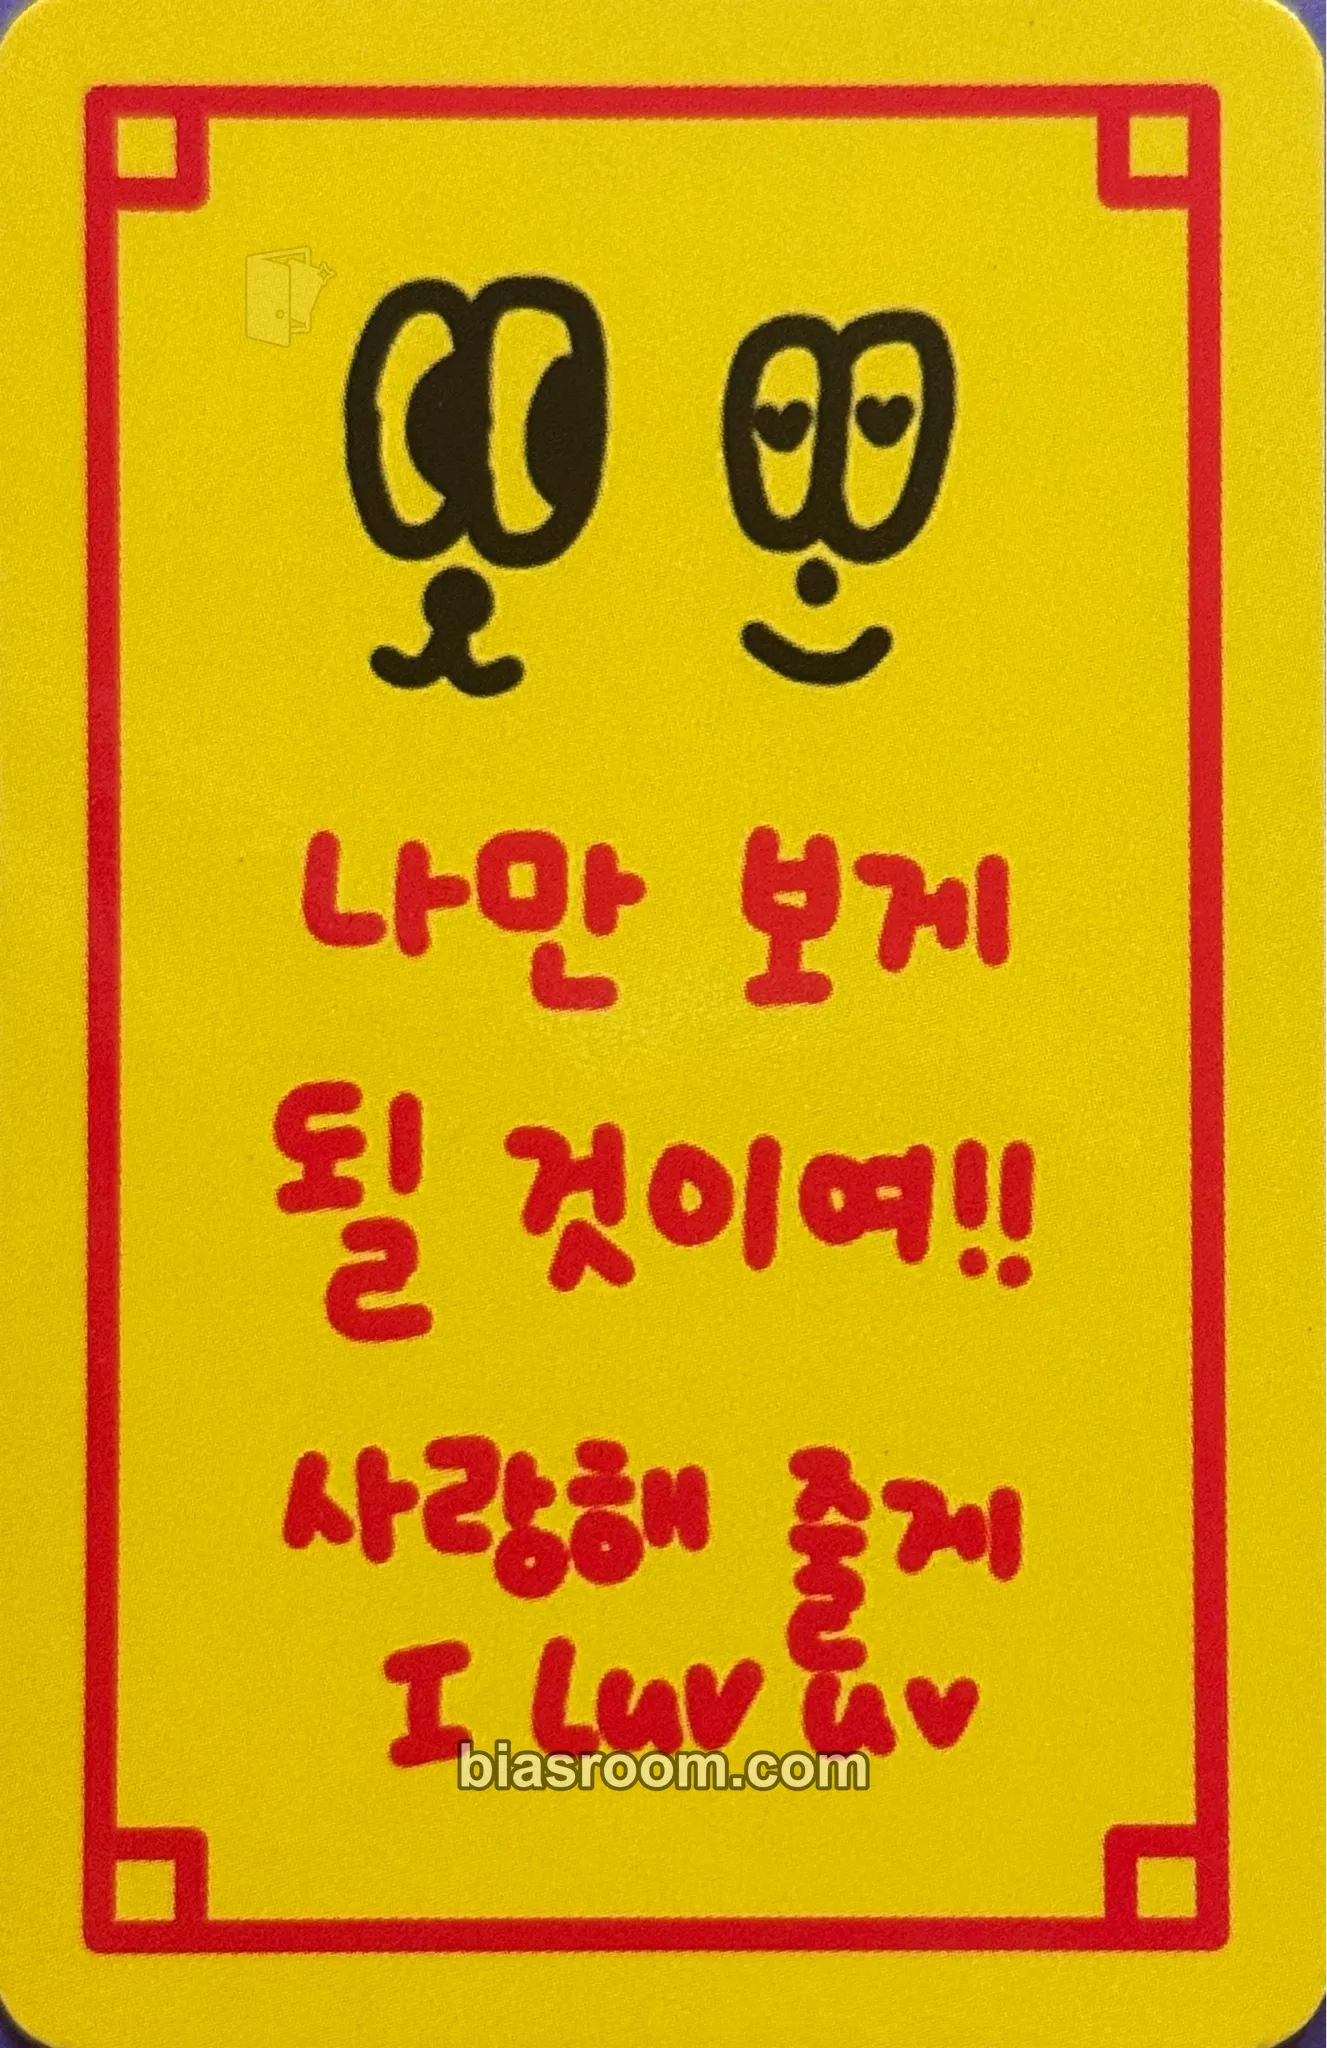 나만 보게
될 것이여!!
사랑해 줄게
I Luv u♥
biasroom.com